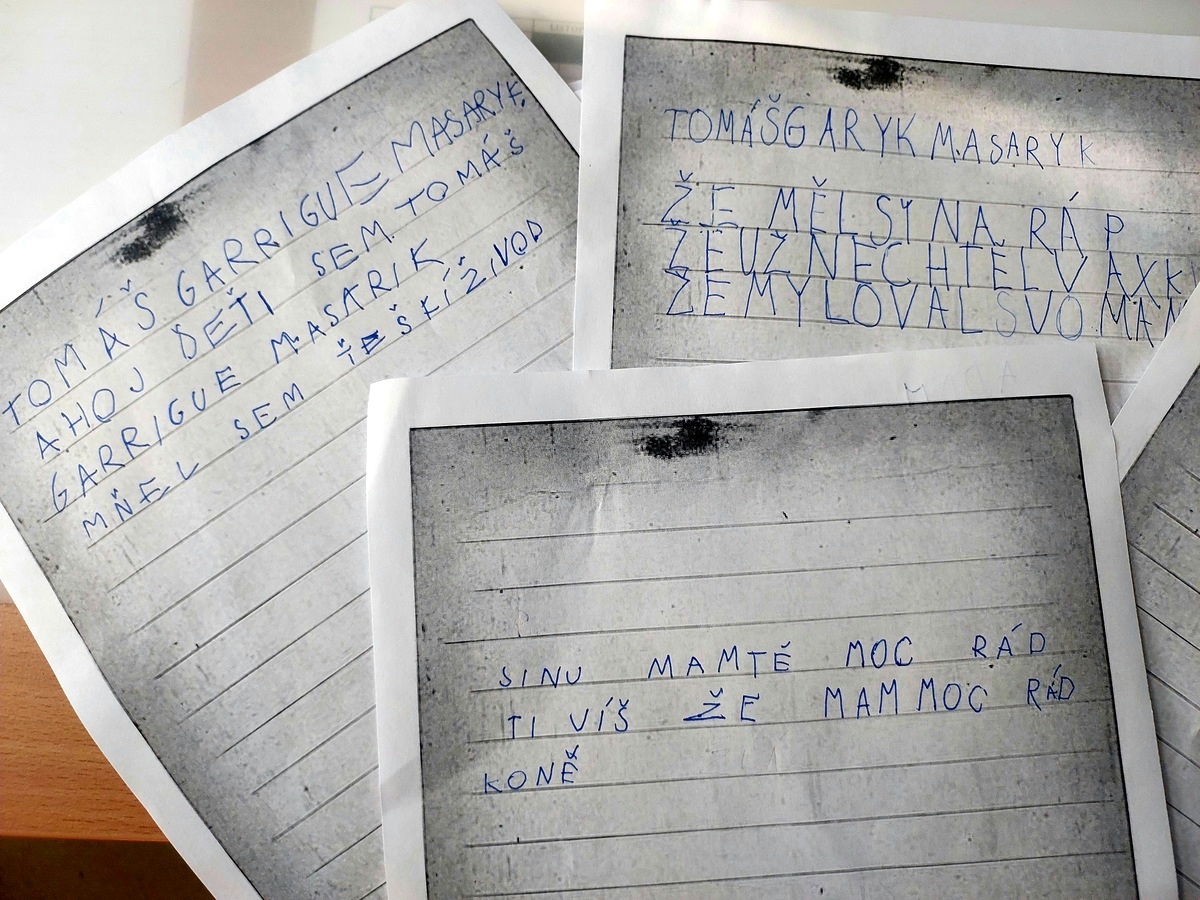 TOMÁŠ GARRIGUE MASARYK
AHOJ DĚŤI SEM TOMÁŠ
GARRIGUE MASARIK
MŇEL SEM ŤEŠKÍ ŽIVOD
TOMÁŠG ARYK MASARYK
ŽE MĚL SYNA RÁP
ŽEUŽ NECHTĚL V
ŽE MYLOVAL SVO
SINU MAMTĚ MOC RÁD
TI VÍŠ ŽE MAM MOC RÁD
KONĚ